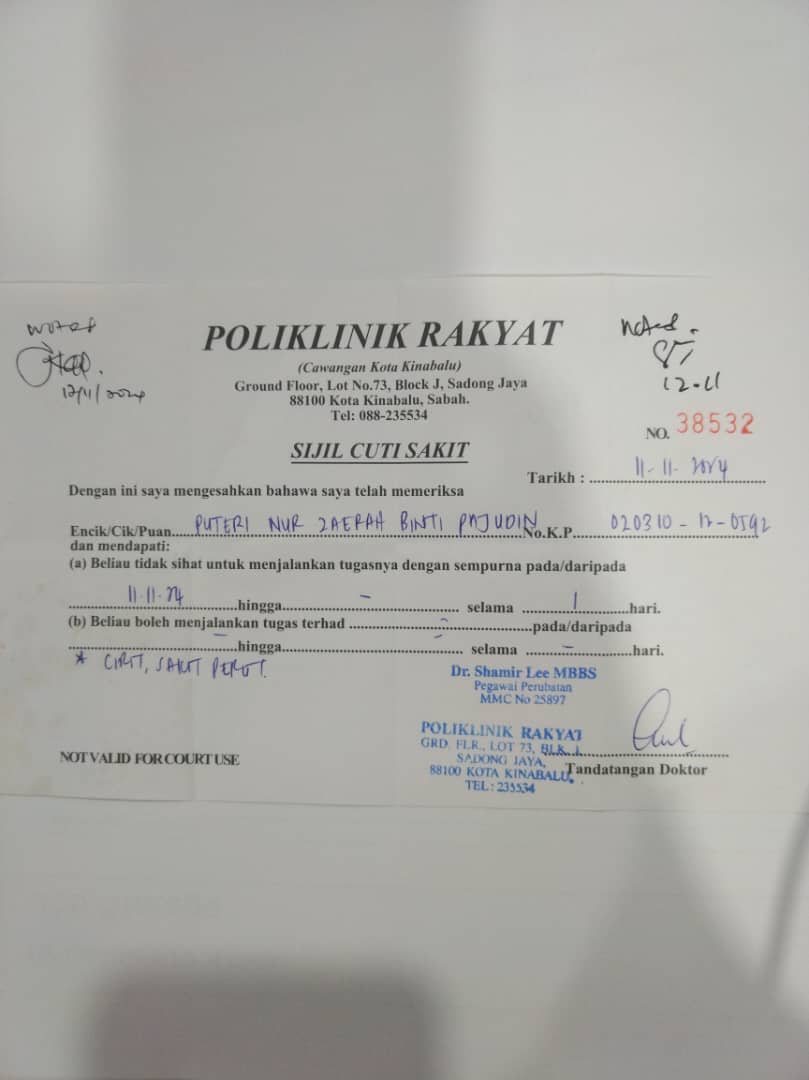 noted
12/11/2024
noted.
12-11
POLIKLINIK RAKYAT
(Cawangan Kota Kinabalu)
Ground Floor, Lot No.73, Block J, Sadong Jaya
88100 Kota Kinabalu, Sabah.
Tel: 088-235534
NO. 38532
SIJIL CUTI SAKIT
Tarikh : 11-11-2024
Dengan ini saya mengesahkan bahawa saya telah memeriksa
Encik/Cik/Puan PUTERI NUR ZAERAH BINTI PAJUDIN No.K.P. 020310-12-0592
dan mendapati:
(a) Beliau tidak sihat untuk menjalankan tugasnya dengan sempurna pada/daripada
11.11.24 hingga - selama 1 hari.
(b) Beliau boleh menjalankan tugas terhad - pada/daripada
- hingga - selama - hari.
* CIRIT, SAKIT PERUT.
Dr. Shamir Lee MBBS
Pegawai Perubatan
MMC No 25897
POLIKLINIK RAKYAT
GRD. FLR., LOT 73, BLK. J,
SADONG JAYA,
88100 KOTA KINABALU.
TEL: 235534
Tandatangan Doktor
NOT VALID FOR COURT USE